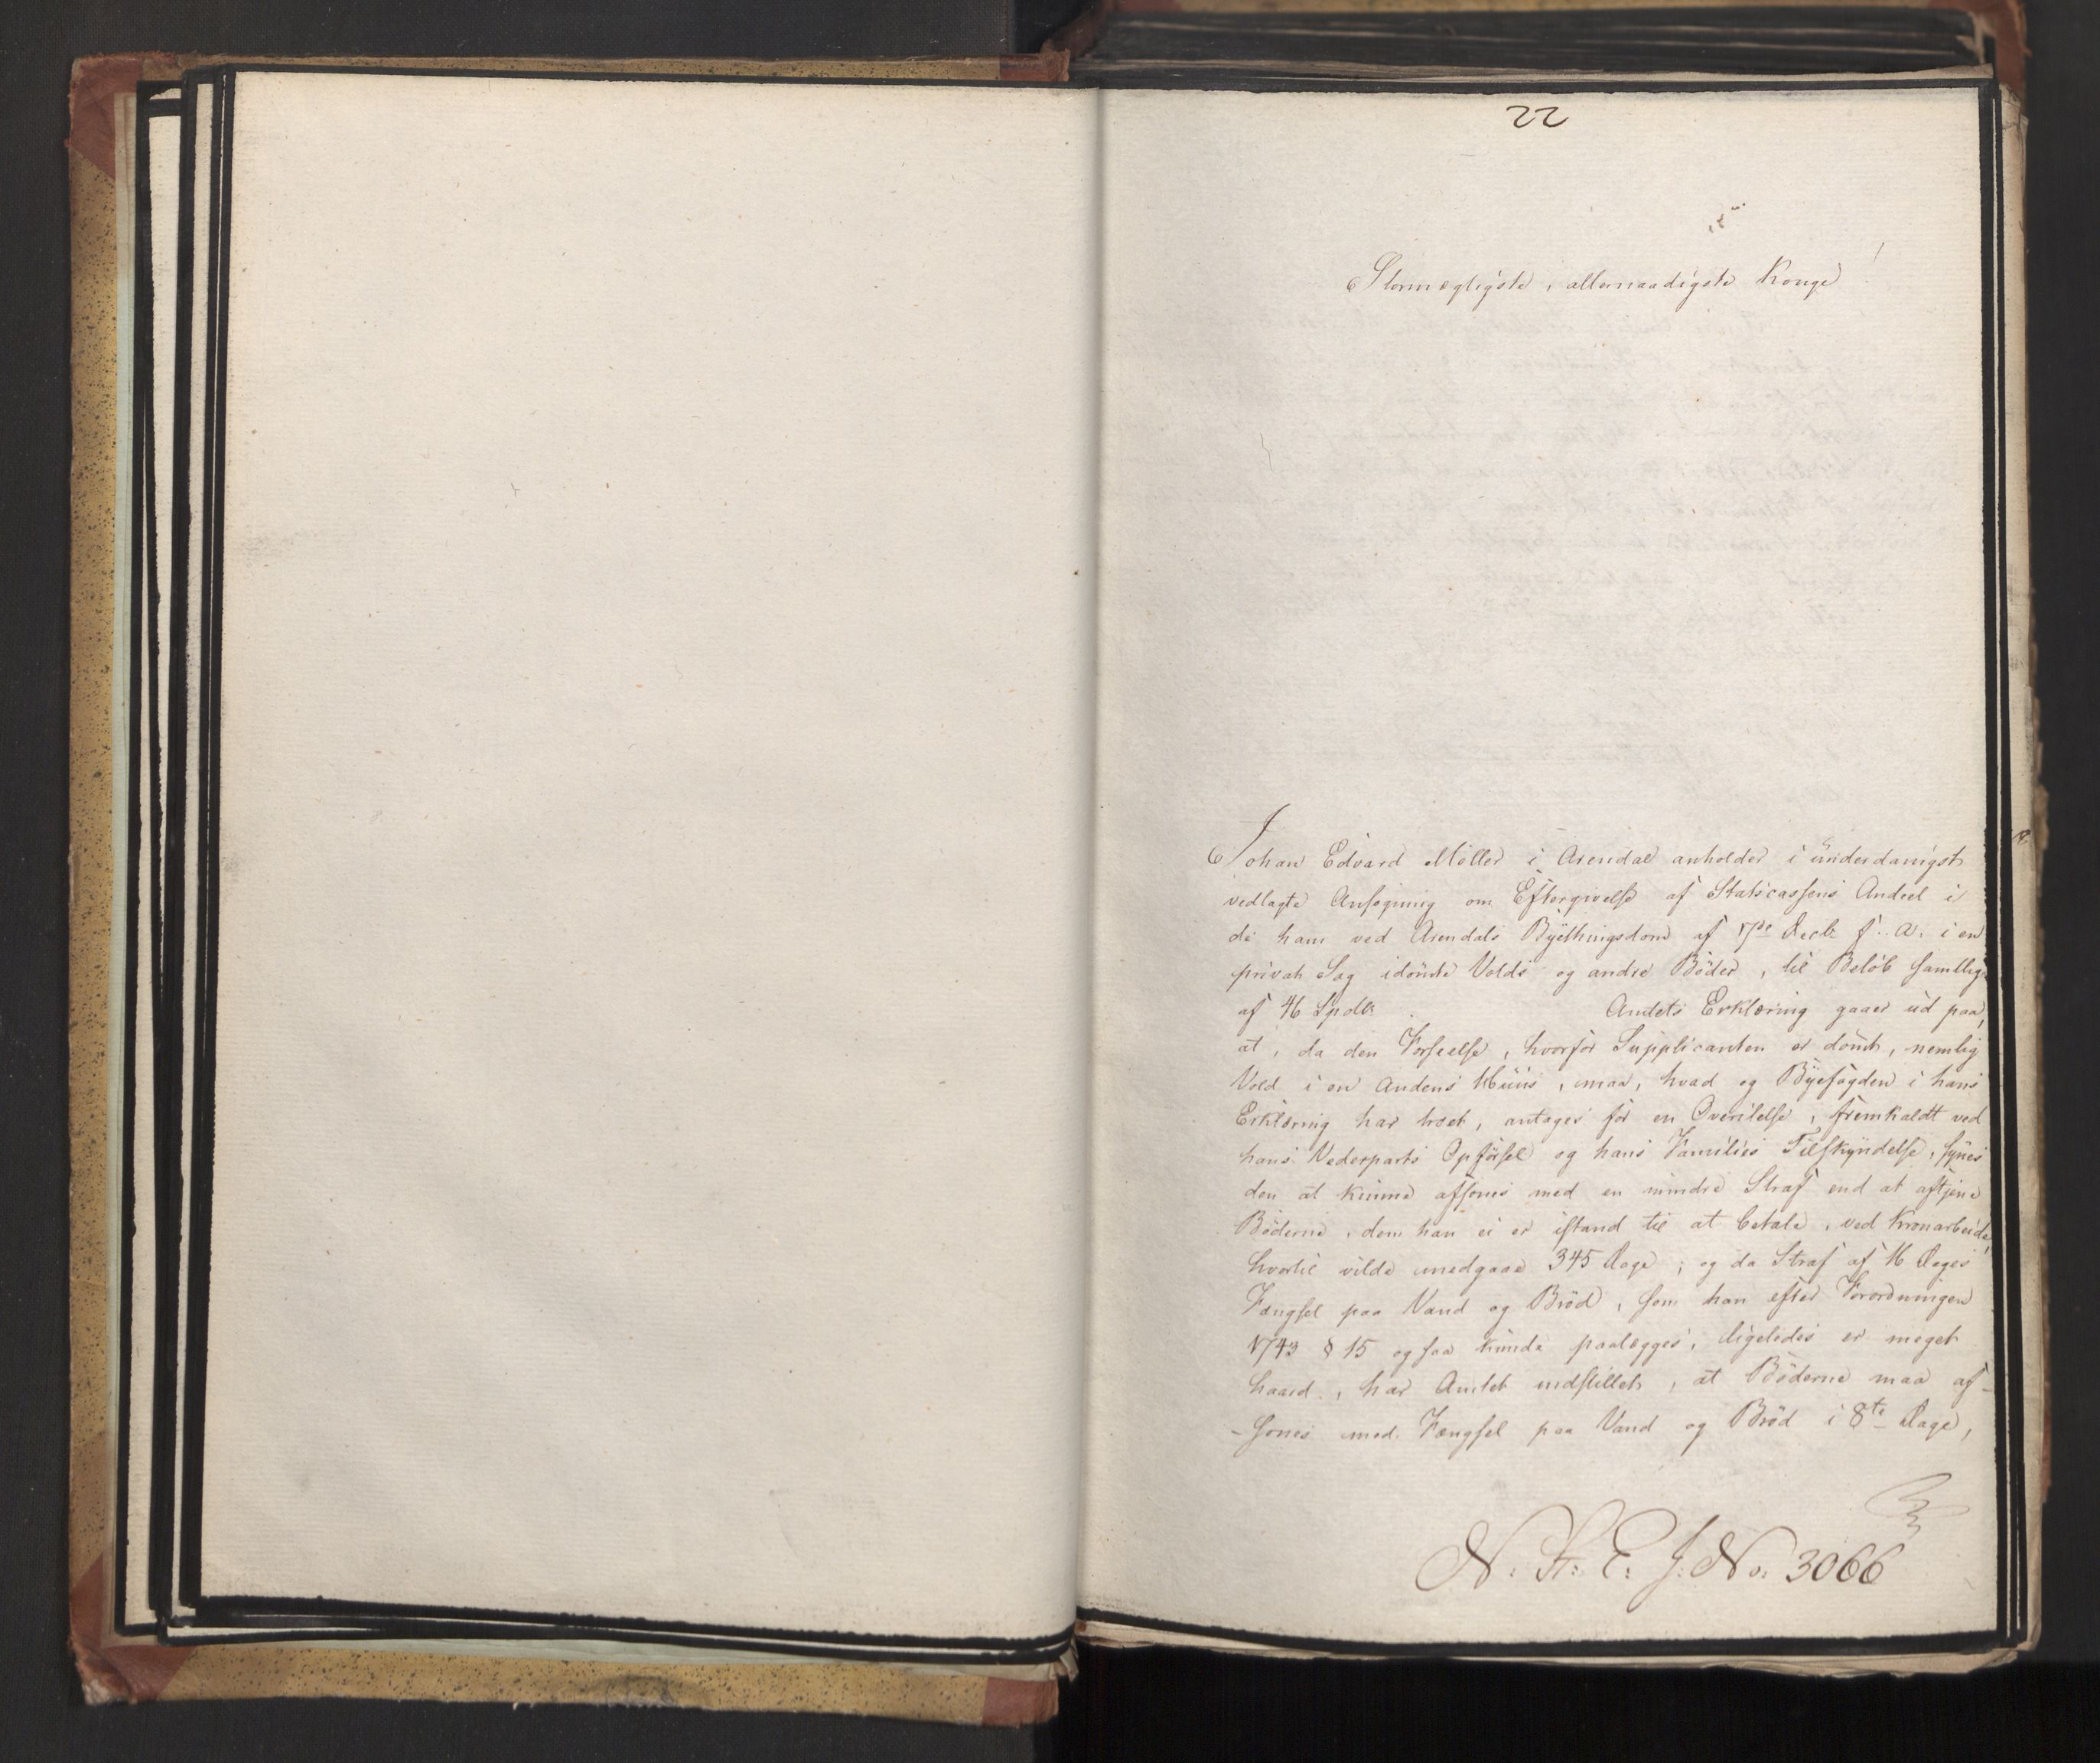 22
Stormægtigste, allernaadigste Konge!
Johan Edvard Møller i Arendal anholder i underdanigst
vedlagte Ansøgning om Eftergivelse af Statscassens Andeel i
de ham ved Arendals Byethingsdom af 17de Decbr f. A. i en
privat Sag idømte Volds og andre Bøder, til Beløb samtlige
af 46 Spdlr. Amtets Erklæring gaaer ud paa,
at, da den Forseelse, hvorfor Supplicanten er dømt, nemlig
Vold i en Andens Huus, maa, hvad og Byefogden i hans
Erklæring har troet, antages for en Overilelse, fremkaldt ved
hans Vederparts Opførsel og hans Families Tilskyndelse, synes
den at kunne afsones med en mindre Straf end at aftjene
Bøderne, dem han ei er istand til at betale, ved Kronarbeide,
hvortil vilde medgaae 345 Dage; og da Straf af 16 Dages
Fængsel paa Vand og Brød, som han efter Forordningen
1743 § 15 ogsaa kunde paalægges, ligeledes er meget
haard, har Amtet indstillet, at Bøderne maa af-
-sones med Fængsel paa Vand og Brød i 8te Dage,
N. St. E. J. No. 3066